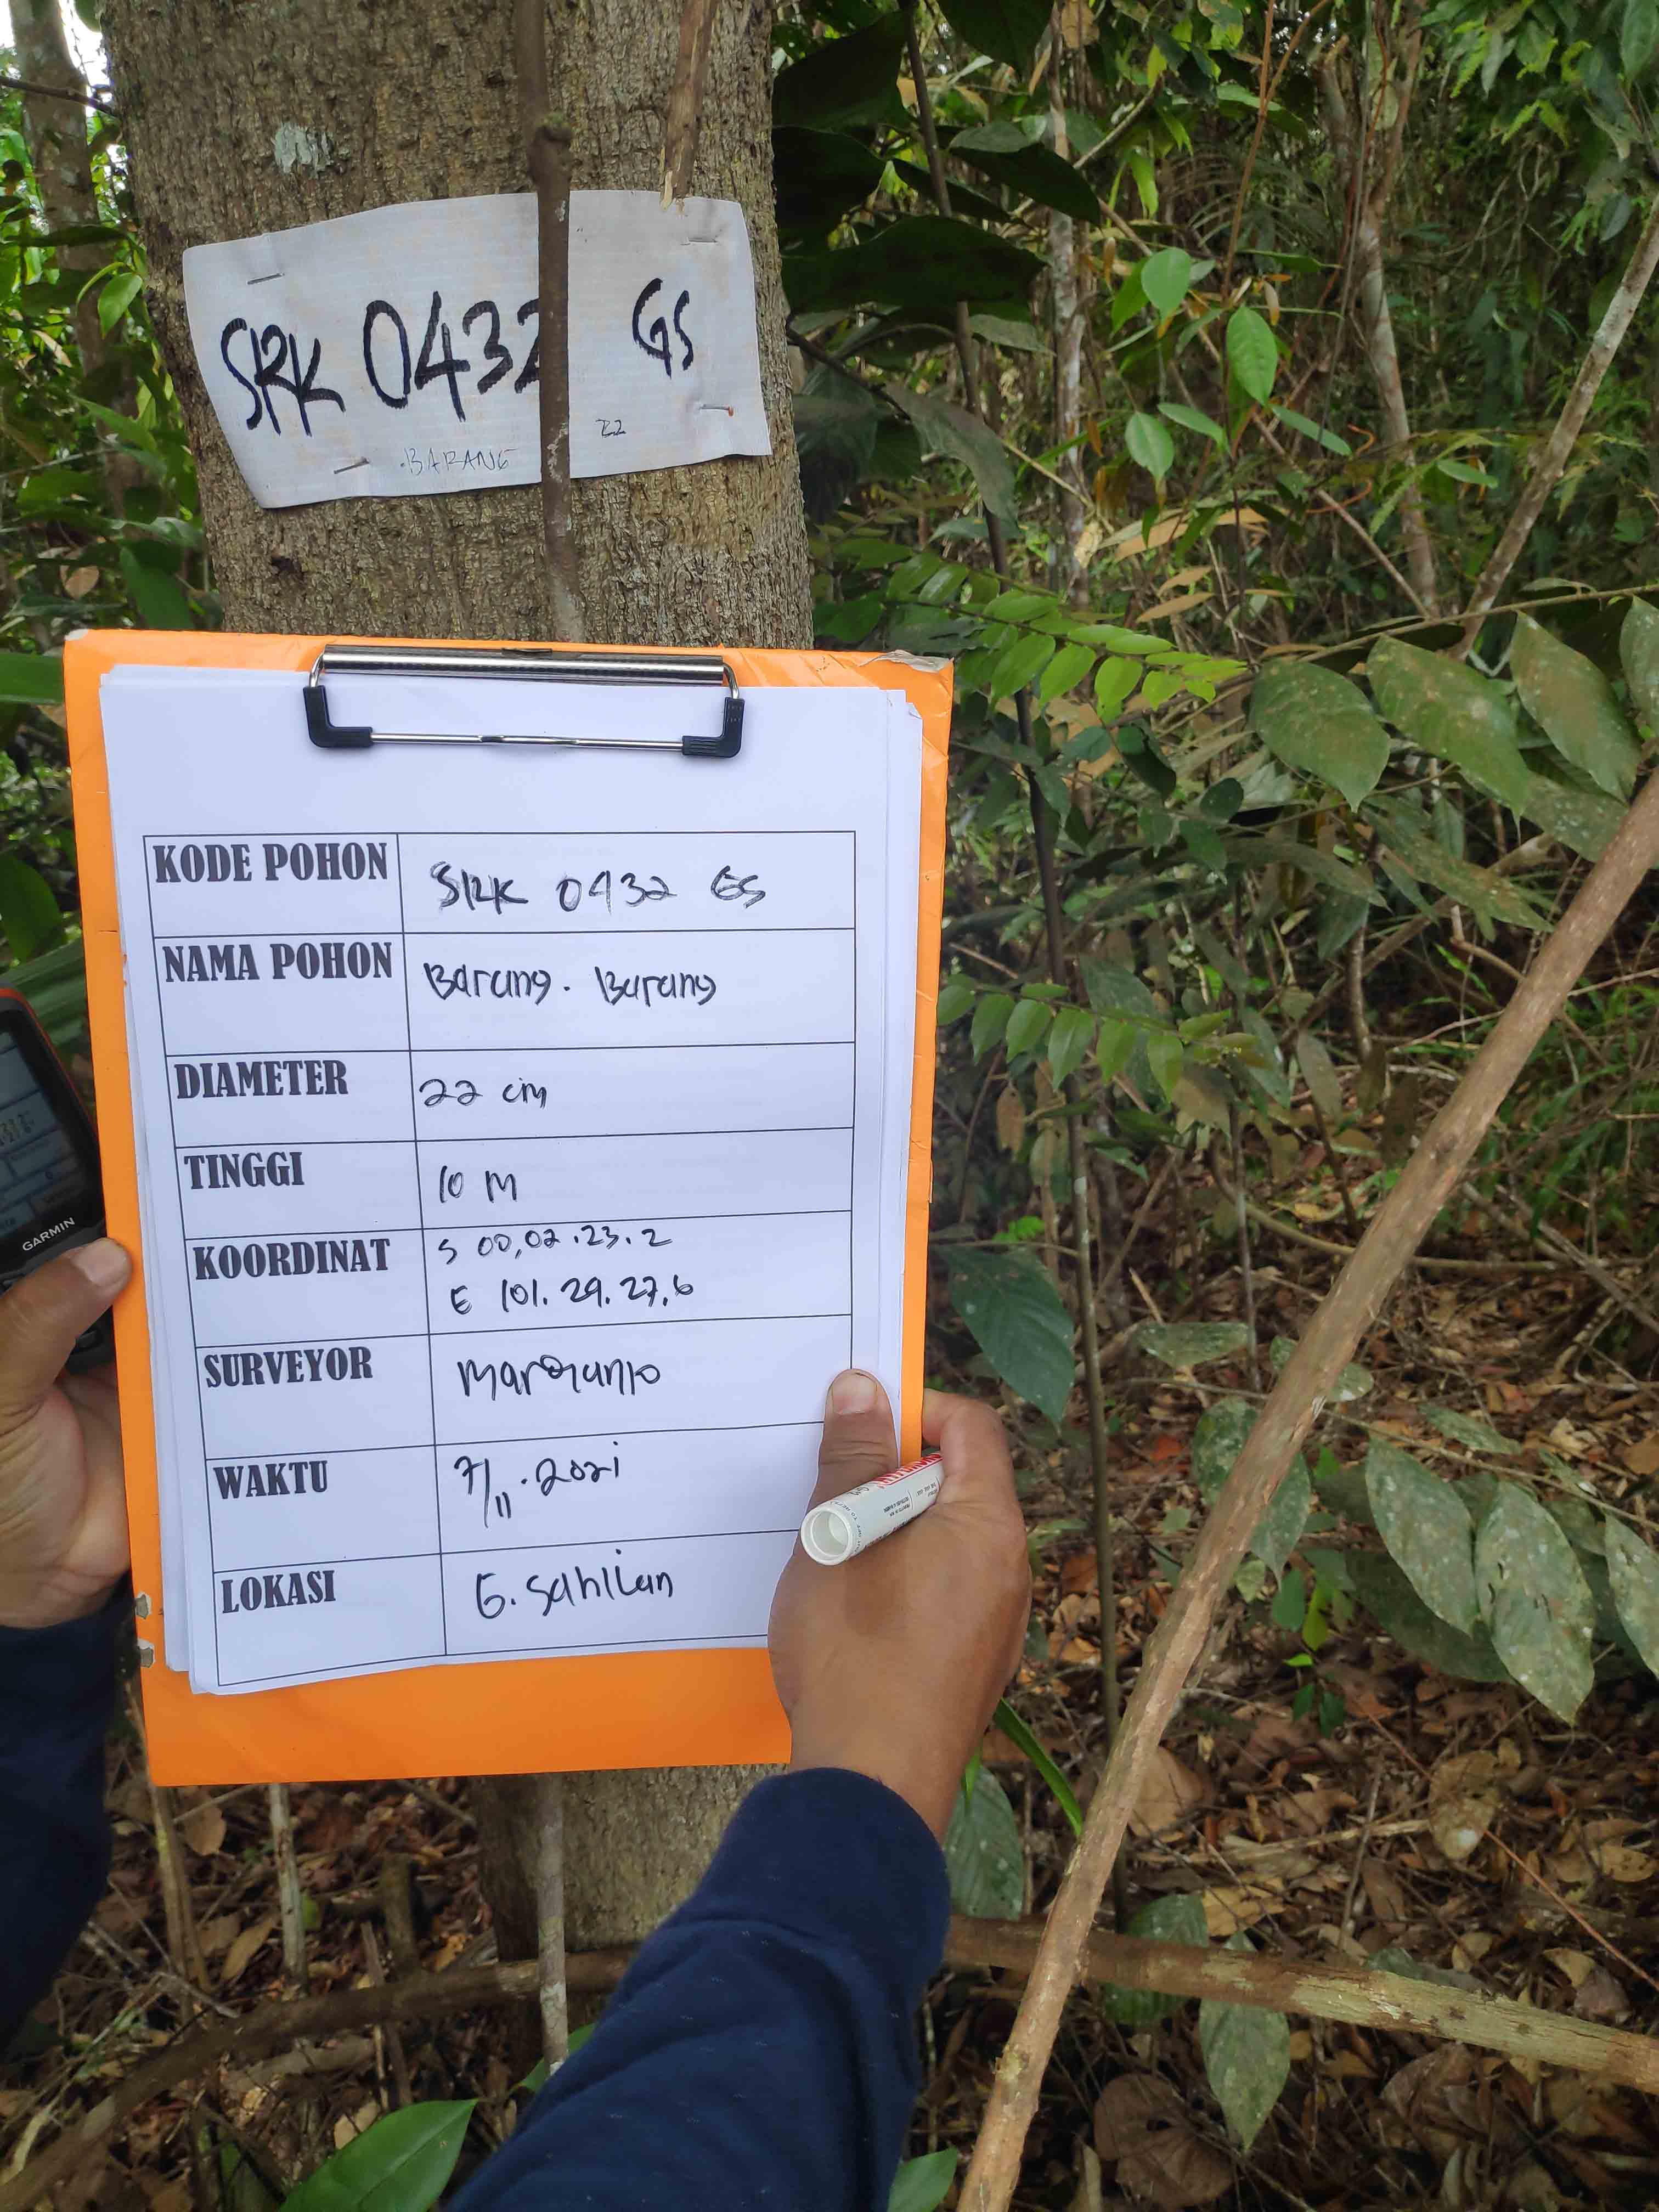 SRK 0432 GS
BARANG 22
KODE POHON SRK 0432 GS
NAMA POHON Barang. Barang
DIAMETER 22 cm
TINGGI 10 M
KOORDINAT S 00,02.23.2
E 101.29.27,6
SURVEYOR
WAKTU 7/11.2021
LOKASI G. Sahilan
GARMIN